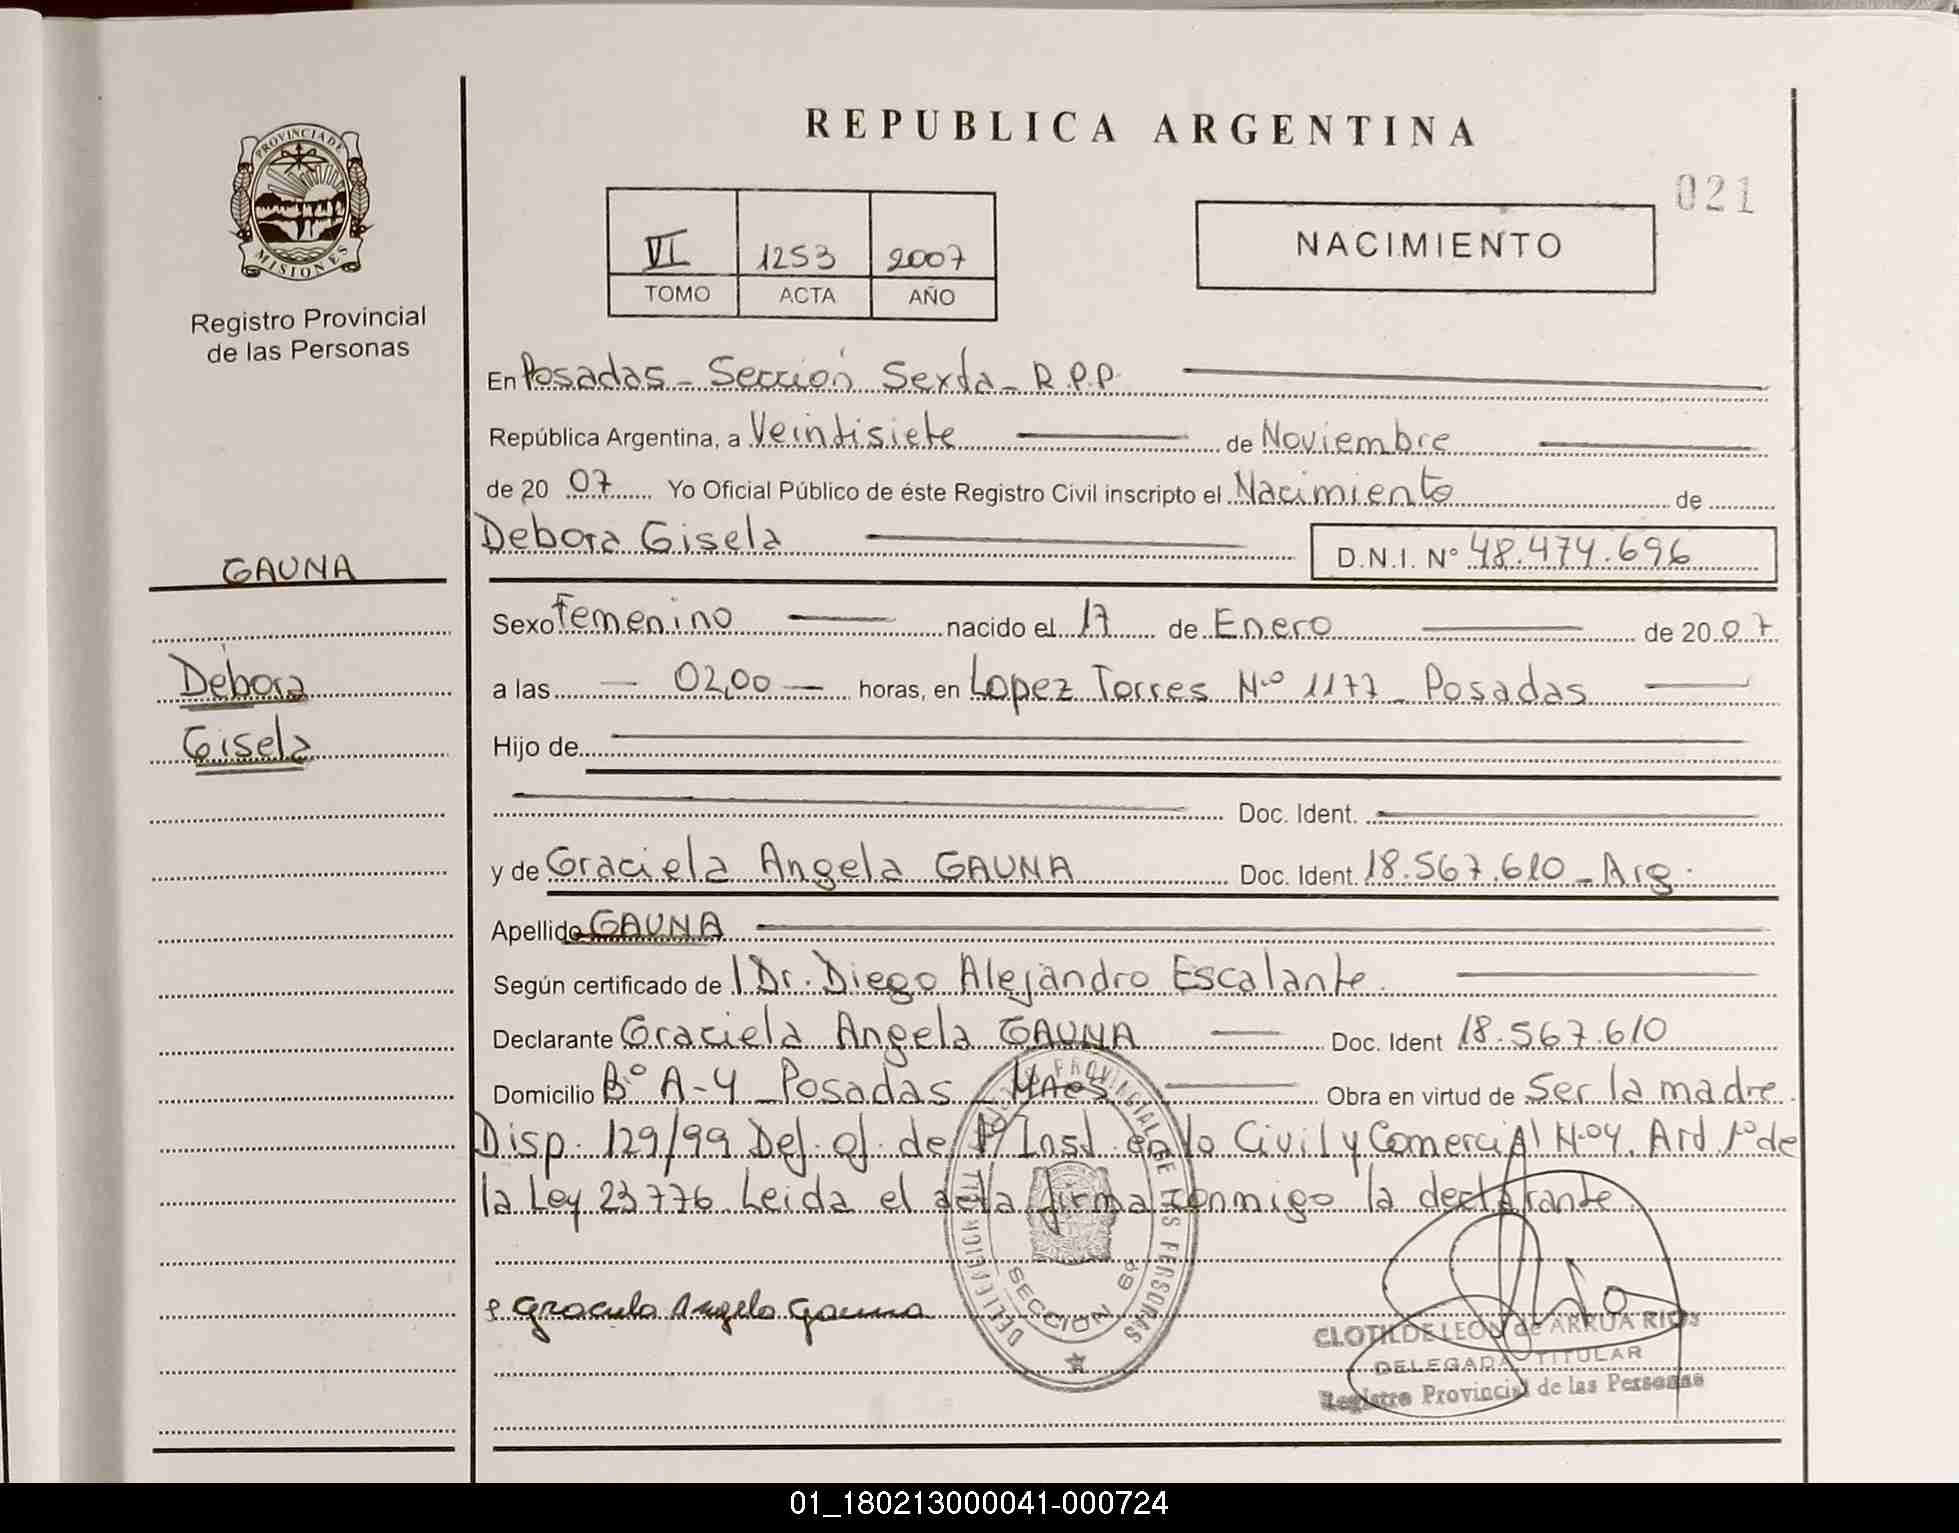 REPUBLICA ARGENTINA
021
PROVINCIA DE
MISIONES
Registro Provincial
de las Personas
VI 1253 2007
TOMO ACTA AÑO
NACIMIENTO
GAUNA
Debora
Gisela
En Posadas - Sección Sexta - R.P.P.
República Argentina, a Veintisiete de Noviembre
de 20 07 Yo Oficial Público de éste Registro Civil inscripto el Nacimiento de
Debora Gisela D.N.I. N° 48.474.696
Sexo Femenino nacido el 17 de Enero de 20 07
a las 02,00 horas, en Lopez Torres N.º 1177 - Posadas
Hijo de
Doc. Ident.
y de Graciela Angela GAUNA Doc. Ident. 18.567.610 - Arg.
Apellido GAUNA
Según certificado de l Dr. Diego Alejandro Escalante.
Declarante Graciela Angela GAUNA Doc. Ident 18.567.610
Domicilio Bº A-4 - Posadas - Mnes Obra en virtud de Ser la madre.
Disp. 129/99 Def. of. de 1º Inst. en lo Civil y Comercial N.º 4. Art 1º de
la Ley 23776. Leida el acta firma conmigo la declarante.
Graciela Angela Gauna
REGISTRO PROVINCIAL DE LAS PERSONAS
DELEGACION
SECCION 6ª
CLOTILDE LEON de ARRUA RIOS
DELEGADA TITULAR
Registro Provincial de las Personas
01_180213000041-000724